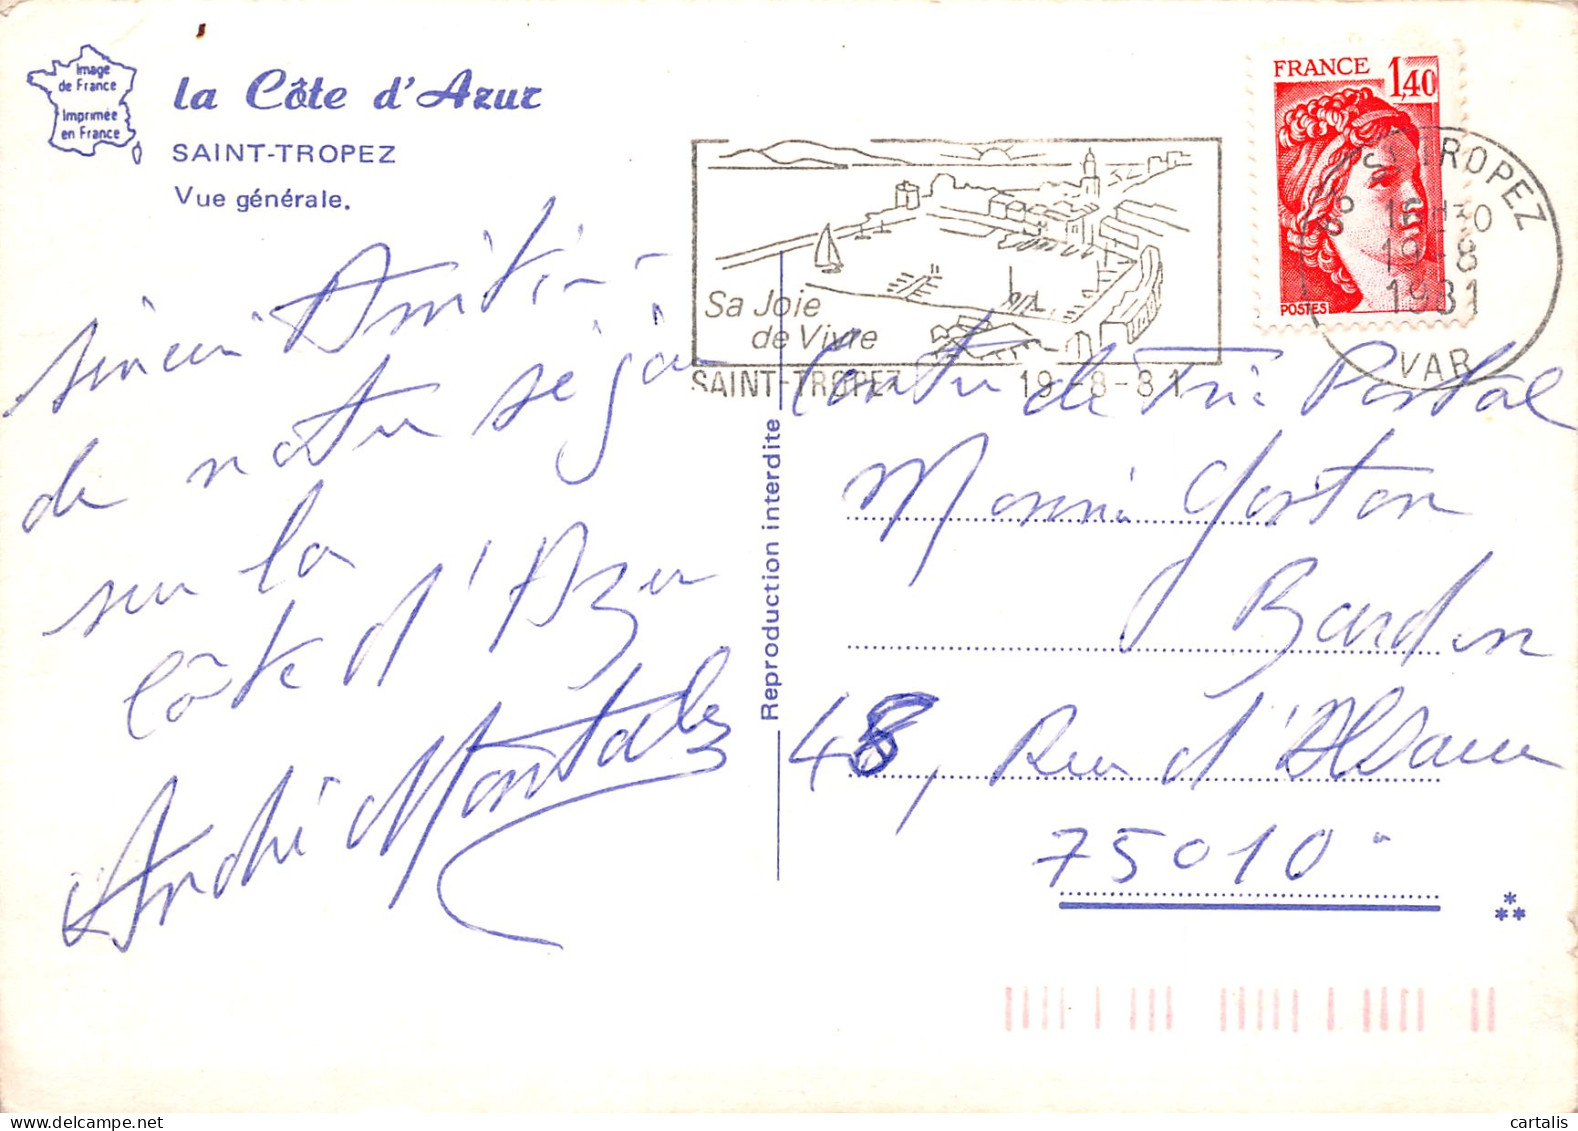 Image
de France
Imprimée
en France
la Côte d'Azur
SAINT-TROPEZ
Vue générale.
Amitié
de notre séjour
sur la
côte d'Azur
André
Reproduction interdite
Sa Joie
de Vivre
SAINT-TROPEZ 19-8-81
FRANCE 1,40
POSTES
83 ST TROPEZ
16H30
19-8
1981
VAR
Centre de Tri Postal
Gaston
48, Rue d'Alsace
75010
cartalis.com